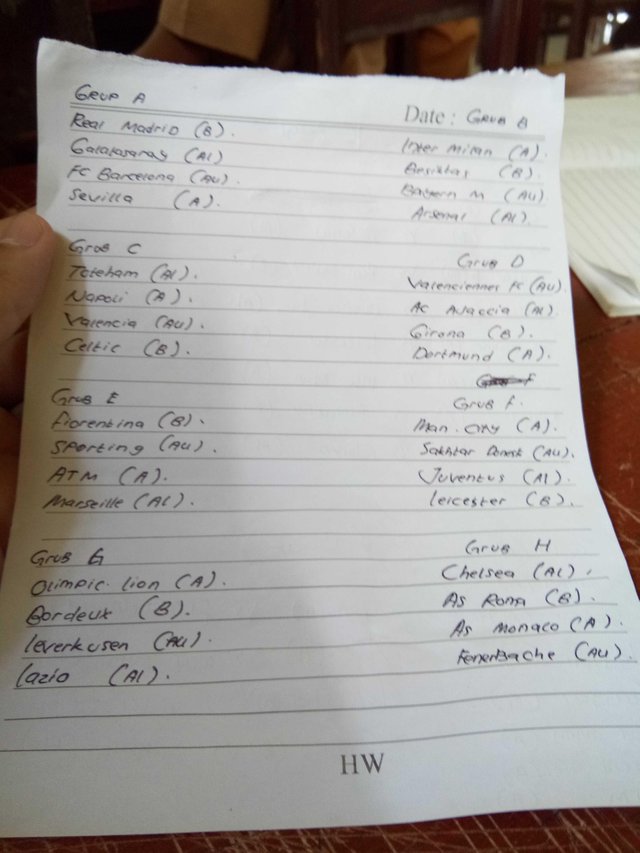 Grup A
Real Madrid (B).
Galatasaray (Al)
FC Barcelona (Au).
Sevilla (A).
Date : Grub B
Inter Milan (A).
Besiktas (B).
Bayern M (Au)
Arsenal (Al).
Grub C
Toteham (Al).
Napoli (A).
Valencia (Au).
Celtic (B).
Grub D
Valenciennes FC (Au)
AC AJaccio (Al)
Girona (B).
Dortmund (A).
Grub E
Fiorentina (B).
Sporting (Au).
ATM (A).
Marseille (Al).
Grub F.
Man. City (A).
Sakhtar Donesk (Au).
Juventus (Al).
leicester (B).
Grub G
Olimpic. lion (A).
Bordeux (B).
leverkusen (Au).
lazio (Al).
Grub H
Chelsea (Al).
As Roma (B).
As Monaco (A).
FenerBache (Au).
HW